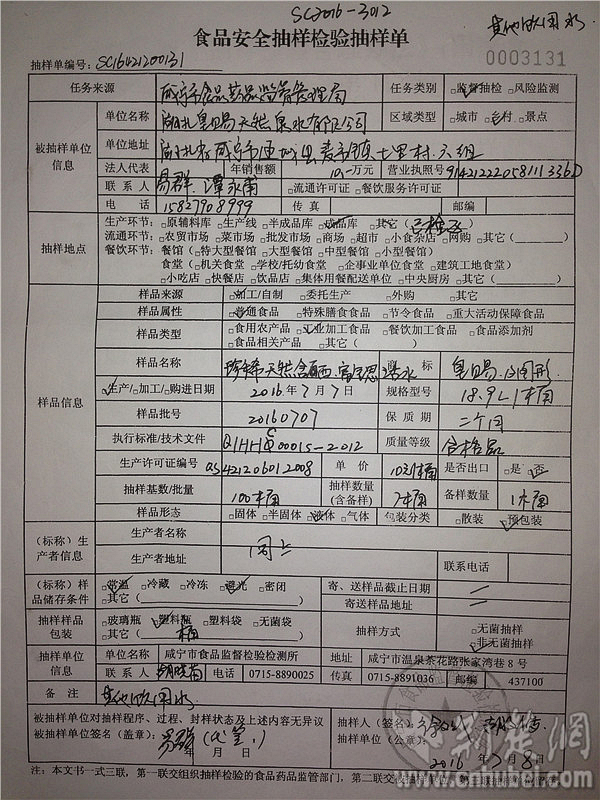 SC2016-3012
其他饮用水
食品安全抽样检验抽样单
抽样单编号: SC16421200131
0003131
任务来源 咸宁市食品药品监督管理局 任务类别 □监督抽检 □风险监测
被抽样单位信息
单位名称 湖北皇赐天然泉水有限公司 区域类型 □城市 □乡村 □景点
单位地址 湖北省咸宁市通城县麦市镇七里村六组
法人代表 年销售额 10万元 营业执照号
联系人 易群 谭永甫 □流通许可证 □餐饮服务许可证
电话 15827908999 传真 邮编
抽样地点
生产环节：□原辅料库 □生产线 □半成品库 □成品库 □其它（已检区）
流通环节：□农贸市场 □菜市场 □批发市场 □商场 □超市 □小食杂店 □网购 □其它（ ）
餐饮环节：餐馆（□特大型餐馆 □大型餐馆 □中型餐馆 □小型餐馆）
食堂（□机关食堂 □学校/托幼食堂 □企事业单位食堂 □建筑工地食堂）
□小吃店 □快餐店 □饮品店 □集体用餐配送单位 □中央厨房 □其它（ ）
样品信息
样品来源 □加工/自制 □委托生产 □外购 □其它
样品属性 □普通食品 □特殊膳食食品 □节令食品 □重大活动保障食品
样品类型 □食用农产品 □工业加工食品 □餐饮加工食品 □食品添加剂
□食品相关产品 □其它（ ）
样品名称 珍稀天然含硒 商标 及图形
□生产/□加工/□购进日期 2016年7月7日 规格型号 18.9L/桶
样品批号 20160707 保质期 二个月
执行标准/技术文件 质量等级 合格品
生产许可证编号 QS421206012008 单价 10元/桶 是否出口 □是 □否
抽样基数/批量 100桶 抽样数量（含备样） 7桶 备样数量 1桶
样品形态 □固体 □半固体 □液体 □气体 包装分类 □散装 □预包装
（标称）生产者信息
生产者名称
生产者地址 同上 联系电话
（标称）样品储存条件 □常温 □冷藏 □冷冻 □避光 □密闭
□其它（ ）
寄、送样品截止日期 —
寄送样品地址 —
抽样样品包装 □玻璃瓶 □塑料瓶 □塑料袋 □无菌袋
□其它（ 桶 ）
抽样方式 □无菌抽样
□非无菌抽样
抽样单位信息
单位名称 咸宁市食品监督检验检测所 地址 咸宁市温泉茶花路张家湾巷8号
联系人 电话 0715-8890025 传真 0715-8891036 邮编 437100
备注 其他饮用水
被抽样单位对抽样程序、过程、封样状态及上述内容无异议
被抽样单位签名（盖章）： 易群（代签）
年 月 日
抽样人（签名）：
抽样单位（公章）：
2016年7月8日
注：本文书一式三联，第一联交组织抽样检验的食品药品监管部门，第二联交被抽样单位，第三联抽样单位留存
荆楚網
www.cnhubei.com